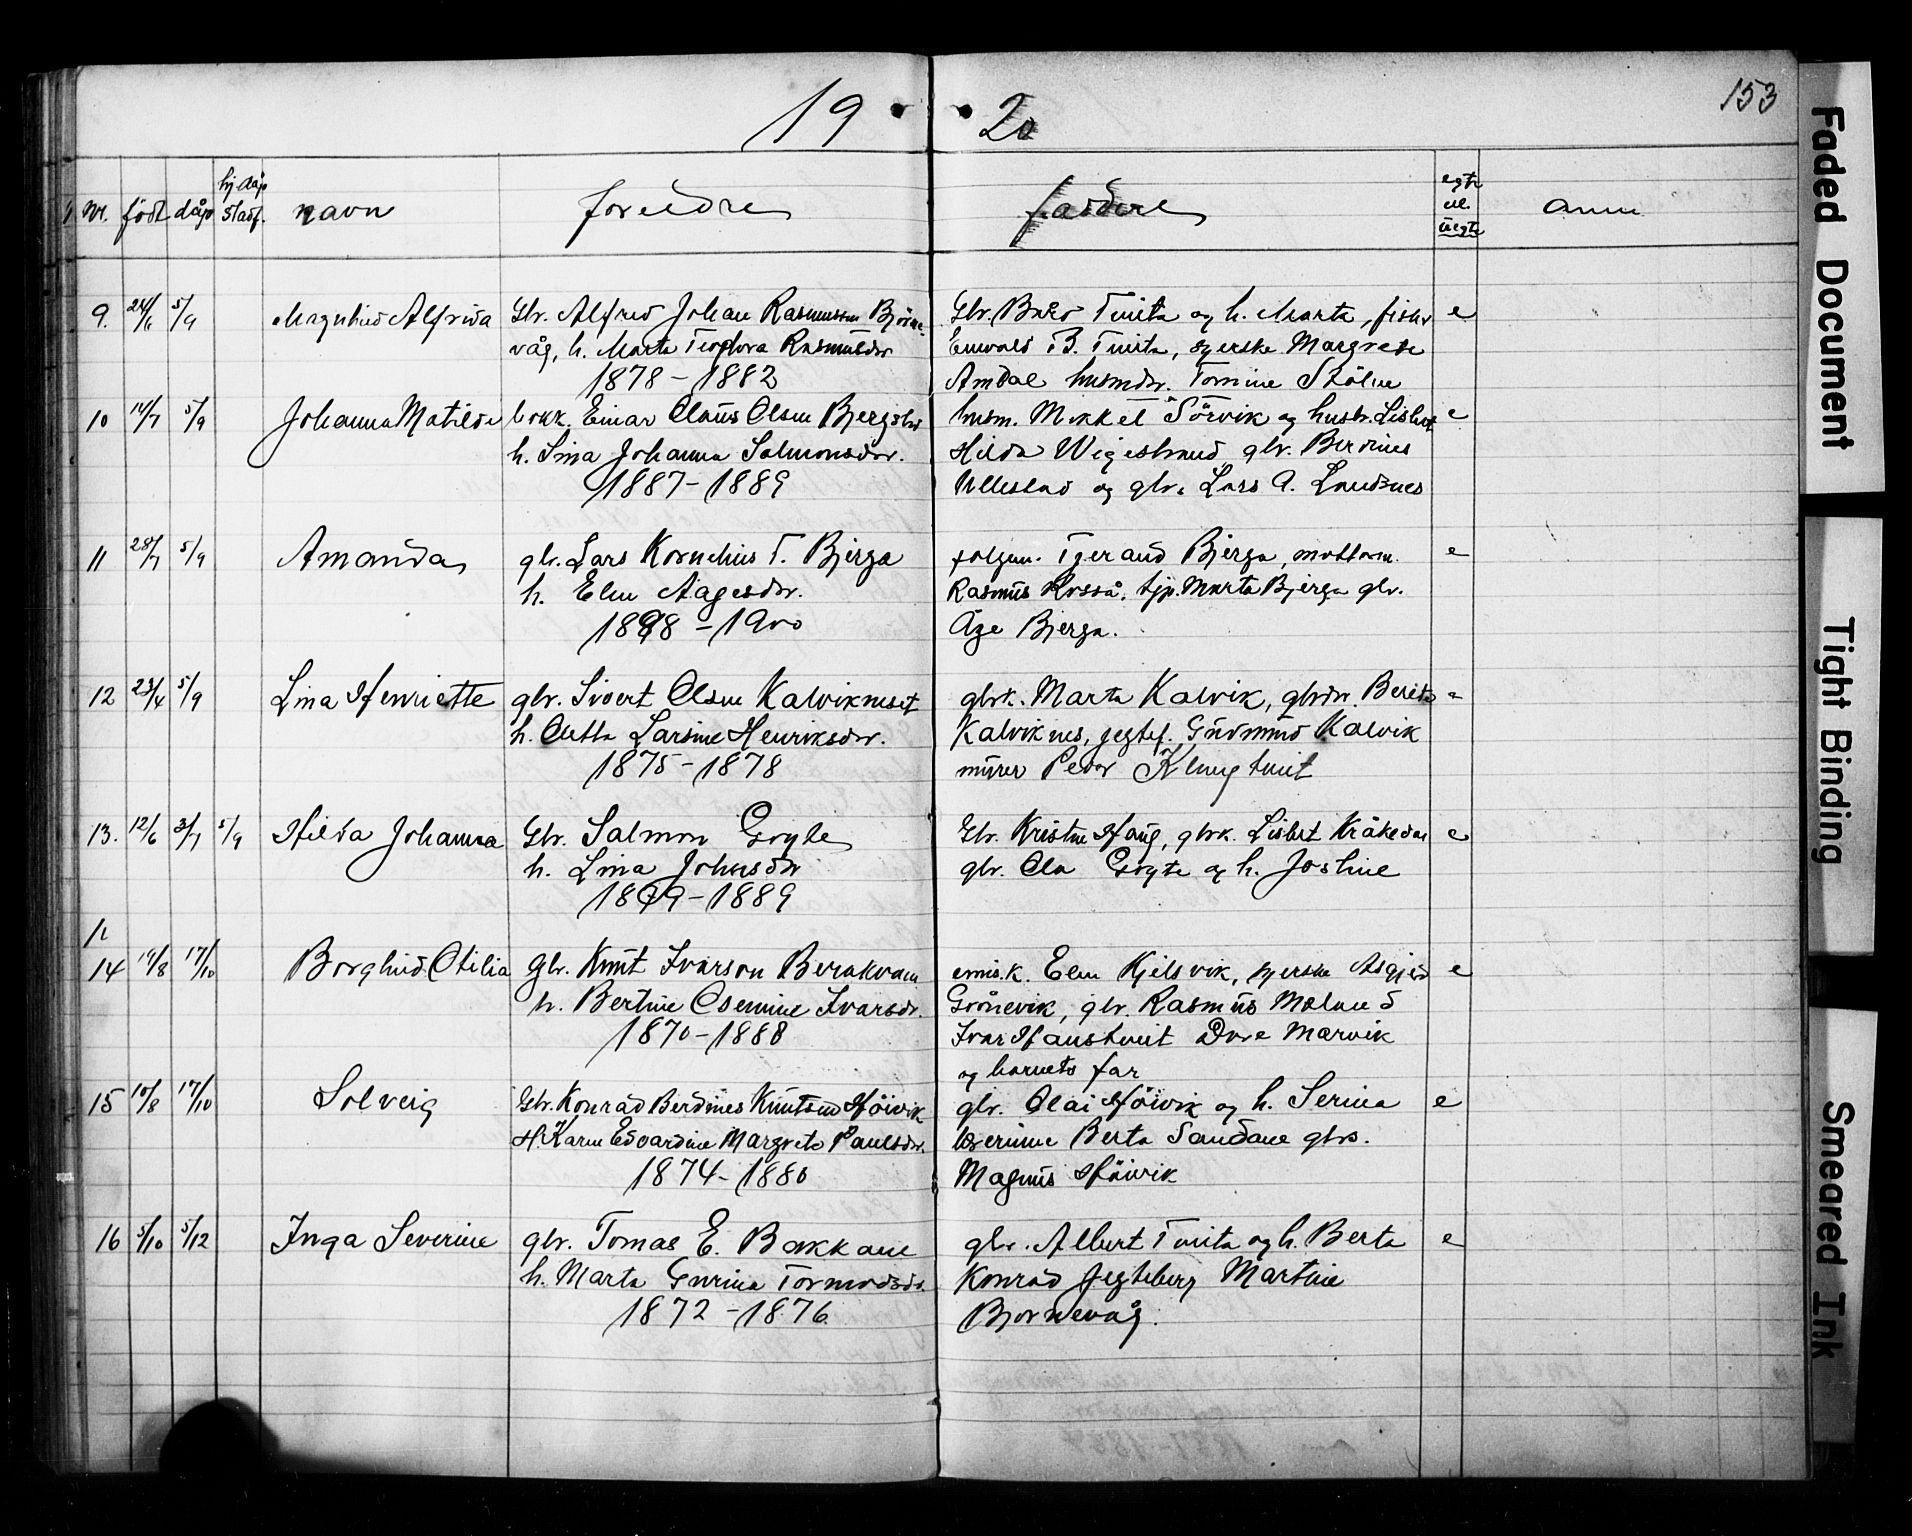 19 20
153
Nr. födt dåp hj.dåp stadf. navn foreldre faddere egte el. uegte anm
9. 24/6 5/9 Magnhild Alfrida Gbr. Alfred Johan Rasmussen Björne-
våg, h. Marta Teodora Rasmusdtr
1878 - 1882
Gbr. Bård Tveita og h. Marta, fisker e
Edvald B. Tveita, syerske Margrete
Amdal husmdr. Tomine Stölne
10 14/7 5/9 Johanna Matilde Einar Olaus Olsen
h. Sina Johanna Salmonsdtr.
1887 - 1889
husm. Mikkel Sörvik og hustr. Lisbet e
Hilda Wigestrand gbr. Berdines
Ullestad og gbr. Lars A. Landsnes
11 28/7 5/9 Amanda gbr. Lars Kornelius T. Bjerga
h. Elen Aagesdtr.
1898 - 1900
Tgerand Bjerga, e
Rasmus Rosså, tjp. Marta Bjerga gbr.
Åge Bjerga.
12 23/4 5/9 Lina Henriette gbr. Sivert Olsen Kalvikneset
h. Larsine Henriksdtr.
1875 - 1878
gbrk. Marta Kalvik, gbrdtr. Berita e
Kalviknes, jegtef. Gudmund Kalvik
murer Peder Klungtveit
13. 12/6 3/7 5/9 Hilda Johanna Gbr. Salmon Gryte
h. Lina Johnsdtr
1869 - 1889
Gbr. Kristen Haug, gbrk. Lisbet Kråkedal e
gbr. Ola Gryte og h. Jostine
14 19/8 17/10 Borghild Otilia Gbr. Knut Ivarson Berakvam
h. Bertine Osemine Ivarsdtr.
1870 - 1888
emis.k. Elen Kjelsvik, syerske Asgjerd e
Grönevik, gbr. Rasmus Mæland
Ivar Handstveit Dore Marvik
og barnets far
15 10/8 17/10 Solveig Gbr. Konrad Berdines Knutsen Höivik
H. Karen Edvardine Margrete Paulsdtr.
1874 - 1880
gbr. Olai Höivik og h. Serina e
lærerinne Berta Sandane gbrs.
Magnus Höivik
16 5/10 5/12 Inga Severine gbr. Tomas E. Bakkane
h. Marta Gurina Tormodsdtr.
1872 - 1876
gbr. Albert Tveita og h. Berta e
Konrad Jegteberg Martine
Bjornevåg.
Faded Document
Tight Binding
Smeared Ink